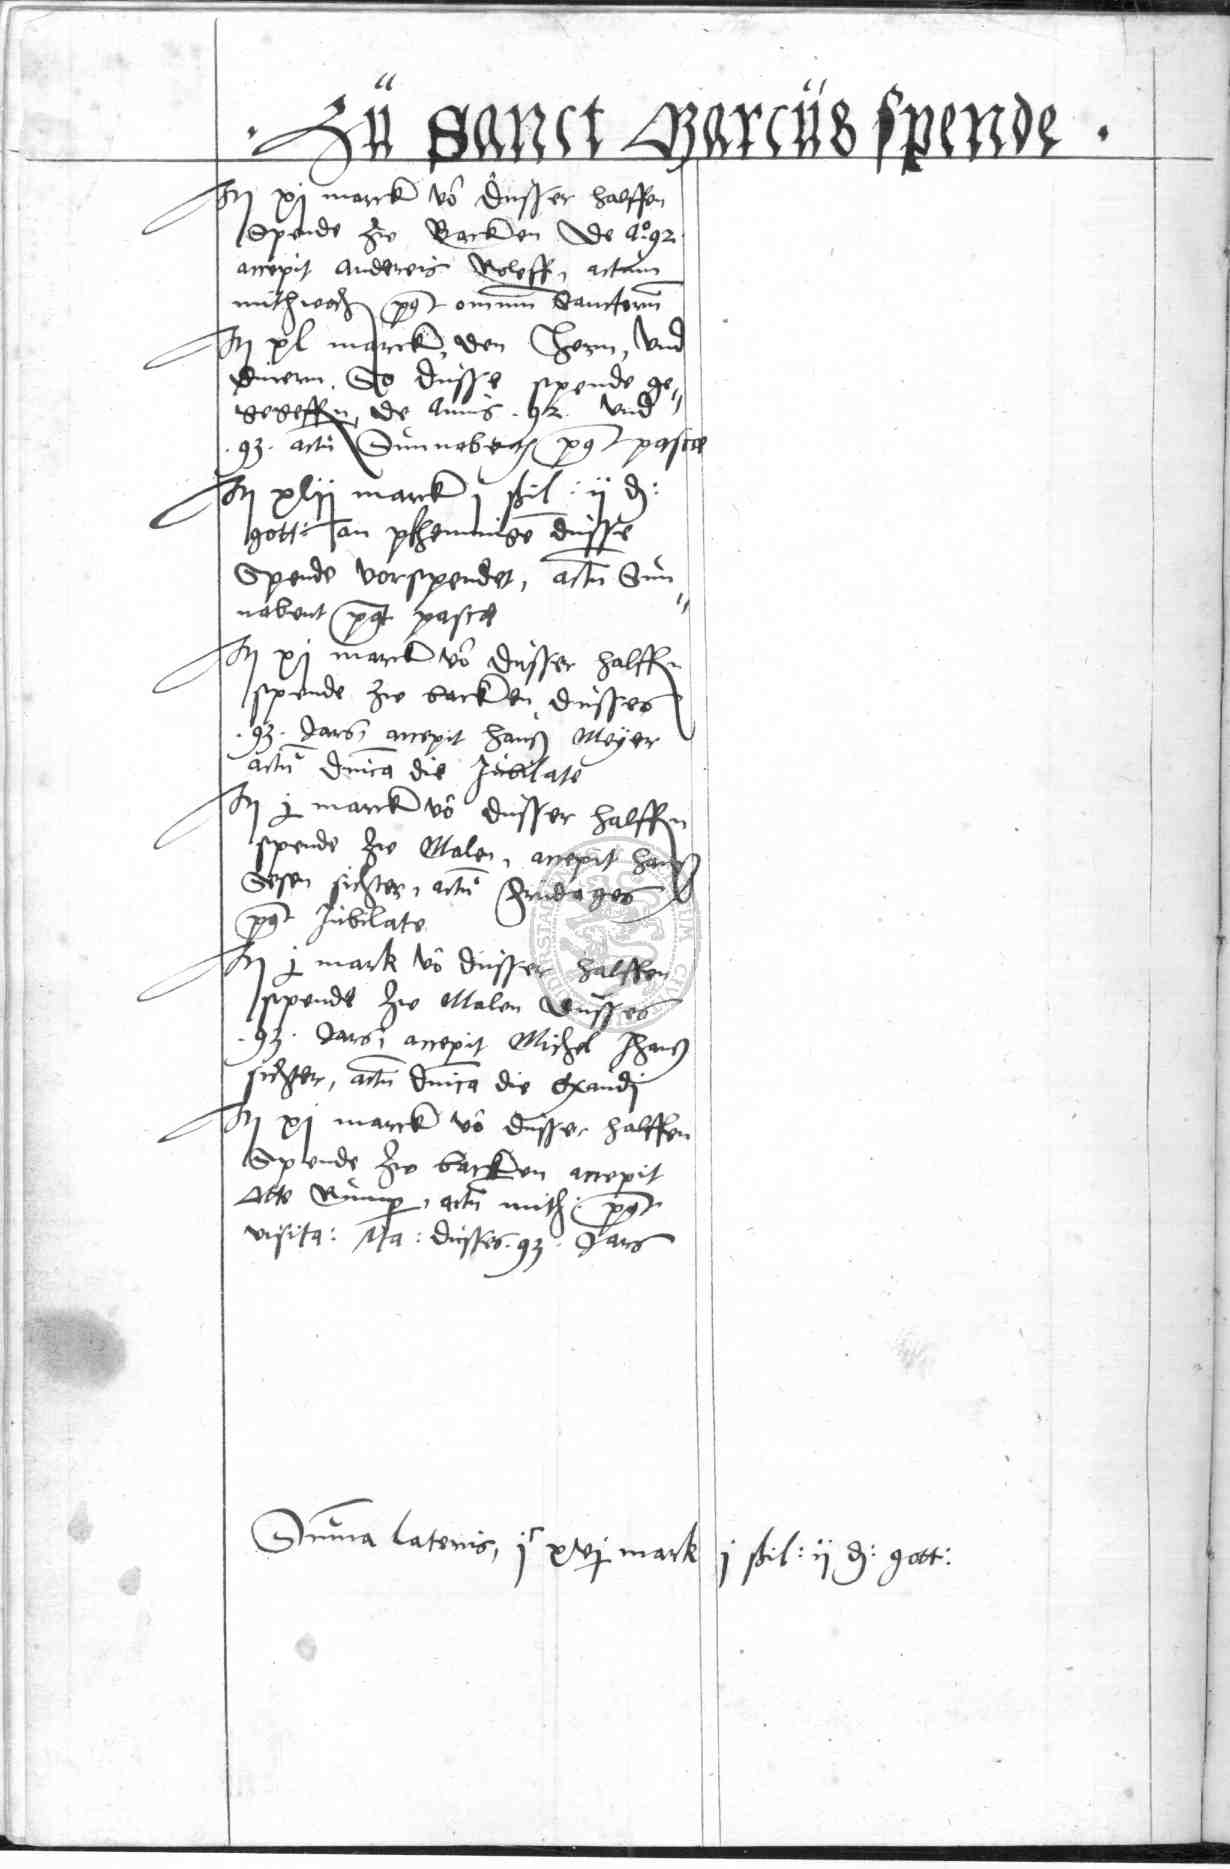 · Zü Sanct Marcüs spende ·
It xj marck vô dusser halffen
Spende zw Backen de Aº 92
accepit Andereis Roleff, actum
mithwoch post omnium Sanctorum
It xl marck, den Hern, vnd
dinern, So dusse spende ge-
gegessen, de Annis . 92 . vnd
. 93 . actū Sunnabent post pasce
It xlij marck j ßil : ij d :
gott : an phenninge dusse
Spende vorspendet, actū Sun-
nabent post pasce
It xj marck vô dusser halffen
spende zw backen dusses
. 93 . Jars, accepit Hans Meyer
actū dnica die Jubilate
It j marck vô dusser halffen
spende zw Malen, accepit Hans
sichter, actū fridages
post Jubilate
It j mark vô dusser halffen
spende zw Malen dusses
. 93 . Jars, accepit Michel Hans
sichter, actū dnica die Exaudj
It xj marck vô dusser halffen
Spende zw backen accepit
actū mith : post
visita : Ma : dusses . 93 . Jars
Suma lateris, jᶜ xvj mark j ßil : ij d : gott :